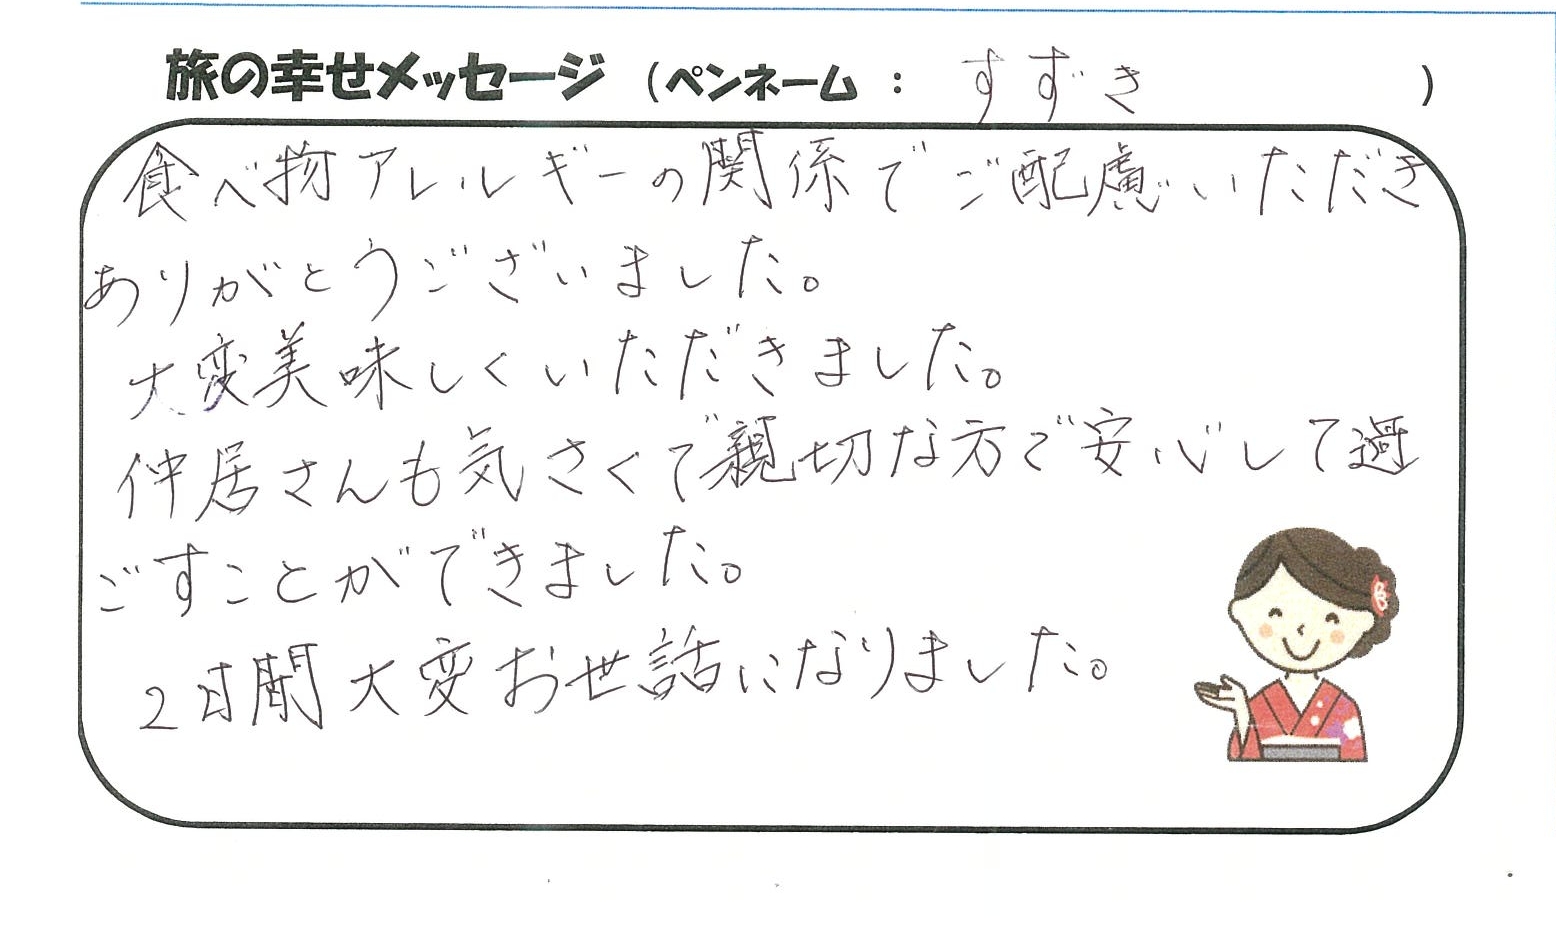 旅の幸せメッセージ (ペンネーム : すずき )
食べ物アレルギーの関係でご配慮いただき
ありがとうございました。
大変美味しくいただきました。
仲居さんも気さくで親切な方で安心して過
ごすことができました。
2日間大変お世話になりました。